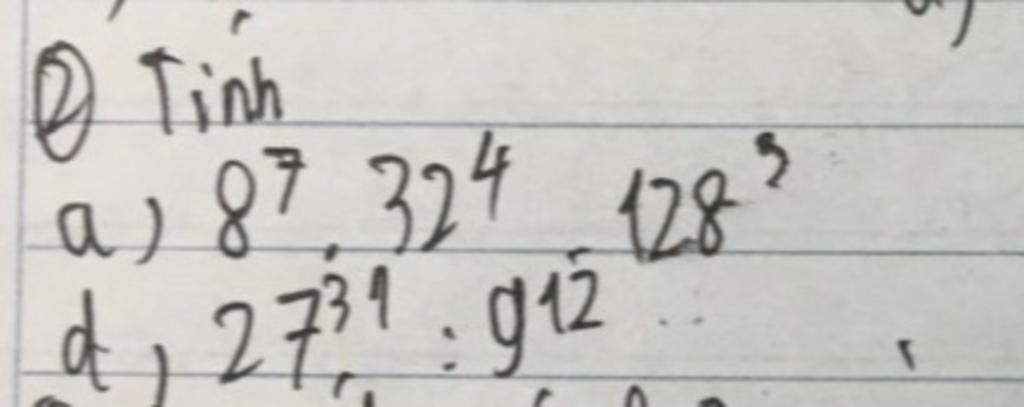 ② Tính
a) 8⁷ . 32⁴ . 128³
d) 27³¹ : 9¹²